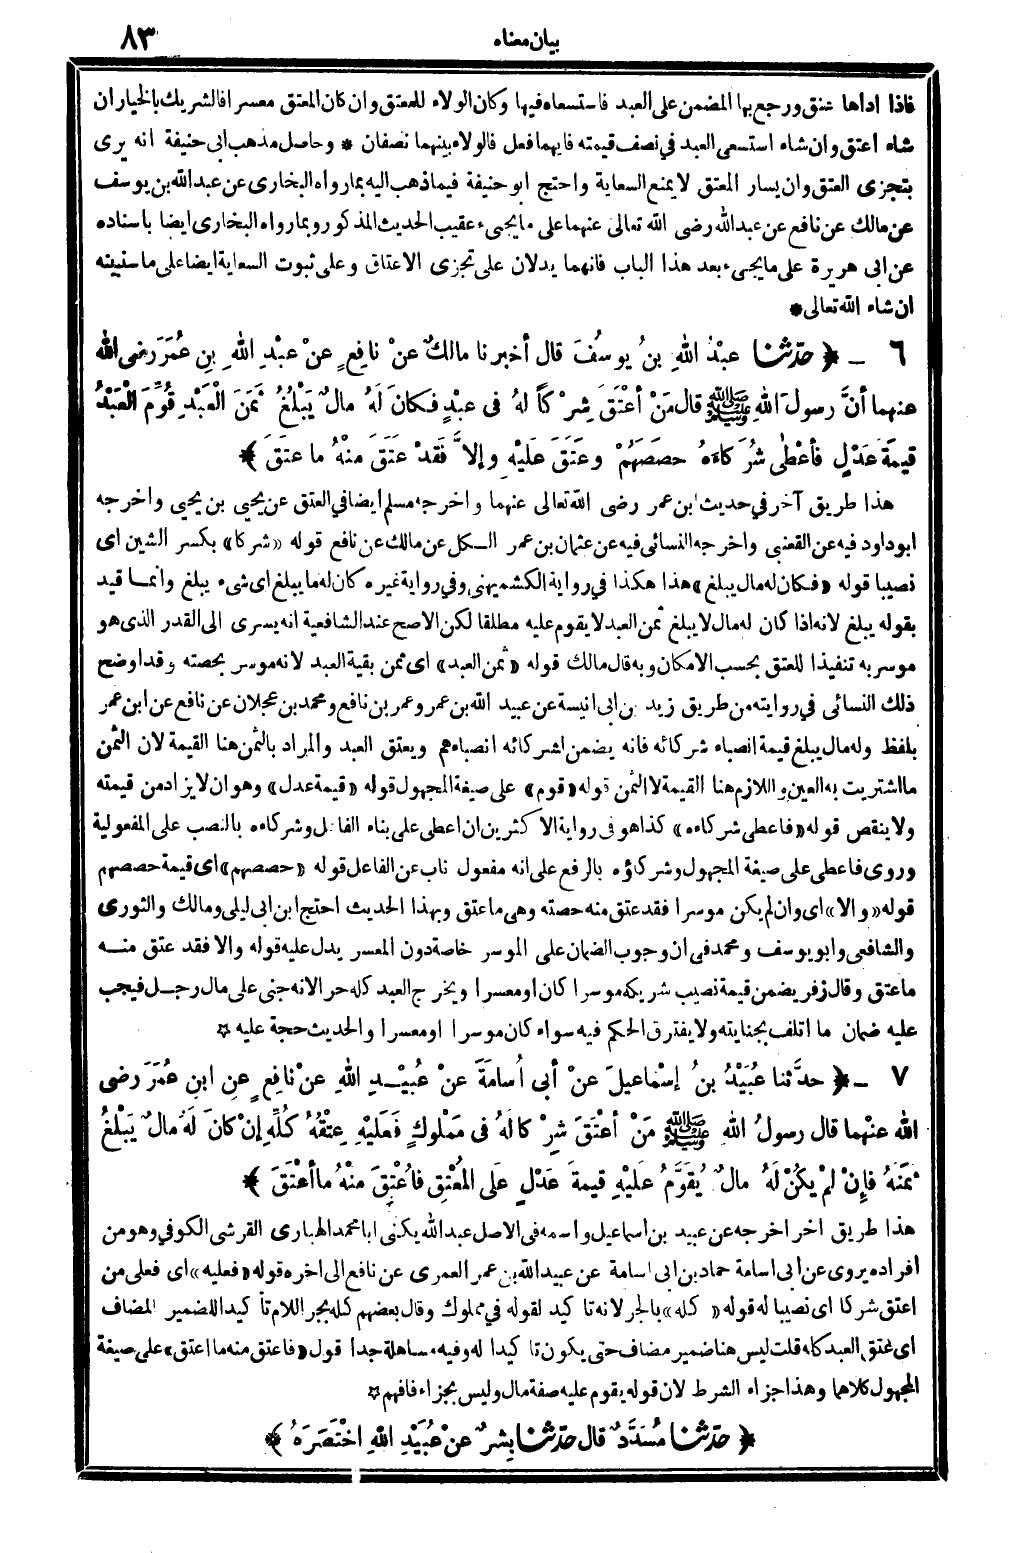 بيان معناه
٨٣
فاذا اداها عتق ورجع بها المضمن على العبد فاستسعاه فيها وكان الولاء للمعتق وان كان المعتق معسرا فالشريك بالخيار ان
شاء اعتق وان شاء استسعى العبد في نصف قيمته فايهما فعل فالولاء بينهما نصفان * وحاصل مذهب ابى حنيفة انه يرى
بتجزى العتق وان يسار المعتق لا يمنع السعاية واحتج ابو حنيفة فيما ذهب اليه بما رواه البخارى عن عبدالله بن يوسف
عن مالك عن نافع عن عبدالله رضى الله تعالى عنهما على ما يجىء عقيب الحديث المذكور وبما رواه البخارى ايضا باسناده
عن ابى هريرة على ما يجىء بعد هذا الباب فانهما يدلان على تجزى الاعتاق وعلى ثبوت السعاية ايضا على ما سنبينه
ان شاء الله تعالى *
٦ – ﴿ حدّثنا عبدُ اللهِ بنُ يوسُفَ قال أخبرنا مالكٌ عنْ نافِعٍ عنْ عبْدِ اللهِ بنِ عُمَرَ رضى الله
عنهما أنَّ رسولَ اللهِ ﷺ قال مَنْ أعْتَقَ شِرْكاً لهُ فى عبْدٍ فكانَ لَهُ مالٌ يَبْلُغُ ثَمَنَ الْعَبْدِ قُوِّمَ الْعَبْدُ
قِيمَةَ عَدْلٍ فأعْطٰى شُرَكاءَهُ حصَصَهُمْ وعَتَقَ عَلَيْهِ وإلاَّ فَقَدْ عَتَقَ مِنْهُ ما عتَقَ ﴾
هذا طريق آخر في حديث ابن عمر رضى الله تعالى عنهما واخرجه مسلم ايضا في العتق عن يحيى بن يحيى واخرجه
ابوداود فيه عن القعنبى واخرجه النسائى فيه عن عثمان بن عمر الكل عن مالك عن نافع قوله «شركا» بكسر الشين اى
نصيبا قوله «فكان له مال يبلغ» هذا هكذا في رواية الكشميهنى وفي رواية غيره كان له ما يبلغ اى شىء يبلغ وانما قيد
بقوله يبلغ لانه اذا كان له مال لا يبلغ ثمن العبد لا يقوم عليه مطلقا لكن الاصح عند الشافعية انه يسرى الى القدر الذى هو
موسر به تنفيذا للعتق بحسب الامكان وبه قال مالك قوله «ثمن العبد» اى ثمن بقية العبد لانه موسر بحصته وقد اوضح
ذلك النسائى في روايته من طريق زيد بن ابى انيسة عن عبيد الله بن عمر وعمر بن نافع ومحمد بن عجلان عن نافع عن ابن عمر
بلفظ وله مال يبلغ قيمة انصباء شركائه فانه يضمن لشركائه انصباءهم ويعتق العبد والمراد بالثمن هنا القيمة لان الثمن
ما اشتريت به العين واللازم هنا القيمة لا الثمن قوله «قوم» على صيغة المجهول قوله «قيمة عدل» وهو ان لا يزاد من قيمته
ولا ينقص قوله «فاعطى شركاءه» كذا هو فى رواية الاكثرين ان اعطى على بناء الفاعل وشركاءه بالنصب على المفعولية
وروى فاعطى على صيغة المجهول وشركاؤه بالرفع على انه مفعول ناب عن الفاعل قوله «حصصهم» اى قيمة حصصهم
قوله «والا» اى وان لم يكن موسرا فقد عتق منه حصته وهى ما عتق وبهذا الحديث احتج ابن ابى ليلى ومالك والثورى
والشافعى وابو يوسف ومحمد فى ان وجوب الضمان على الموسر خاصة دون المعسر يدل عليه قوله والا فقد عتق منه
ما عتق وقال زفر يضمن قيمة نصيب شريكه موسرا كان او معسرا ويخرج العبد كله حر الانه جنى على مال رجل فيجب
عليه ضمان ما اتلف بجنايته ولا يفترق الحكم فيه سواء كان موسرا او معسرا والحديث حجة عليه *
٧ – ﴿ حدَّثنا عُبَيْدُ بنُ إسْماعيلَ عنْ أبى أُسامَةَ عنْ عُبَيْدِ اللهِ عنْ نافِعٍ عنِ ابنِ عُمَرَ رضى
الله عنْهما قال رسولُ اللهِ ﷺ مَنْ أعْتَقَ شِرْكا لَهُ فى مَمْلُوكٍ فَعَلَيْهِ عِتْقُهُ كُلِّهِ إنْ كانَ لَهُ مالٌ يَبْلُغُ
ثمَنَهُ فإِنْ لمْ يكُنْ لَهُ مالٌ يُقَوَّمُ عَلَيْهِ قِيمَةَ عَدْلٍ عَلَى المُعْتِقِ فاُعْتِقَ مِنْهُ ما أعْتَقَ ﴾
هذا طريق اخر اخرجه عن عبيد بن اسماعيل واسمه فى الاصل عبدالله يكنى ابا محمد الهبارى القرشى الكوفي وهو من
أفراده يروى عن ابى اسامة حماد بن ابى اسامة عن عبيدالله بن عمر العمرى عن نافع الى اخره قوله «فعليه» اى فعلى من
اعتق شركا اى نصيبا له قوله «كله» بالجر لانه تاكيد لقوله في مملوك وقال بعضهم كله بجر اللام تأكيد اللضمير المضاف
اى عتق العبد كله قلت ليس هنا ضمير مضاف حتى يكون تاكيدا له وفيه مساهلة جدا قول «فاعتق منه ما اعتق» على صيغة
المجهول كلاهما وهذا جزاء الشرط لان قوله يقوم عليه صفة مال وليس بجزاء فافهم *
﴿ حدّثنا مُسَدَّدٌ قال حدّثنا بِشرٌ عنْ عُبَيْدِ اللهِ اخْتَصَرَهُ ﴾